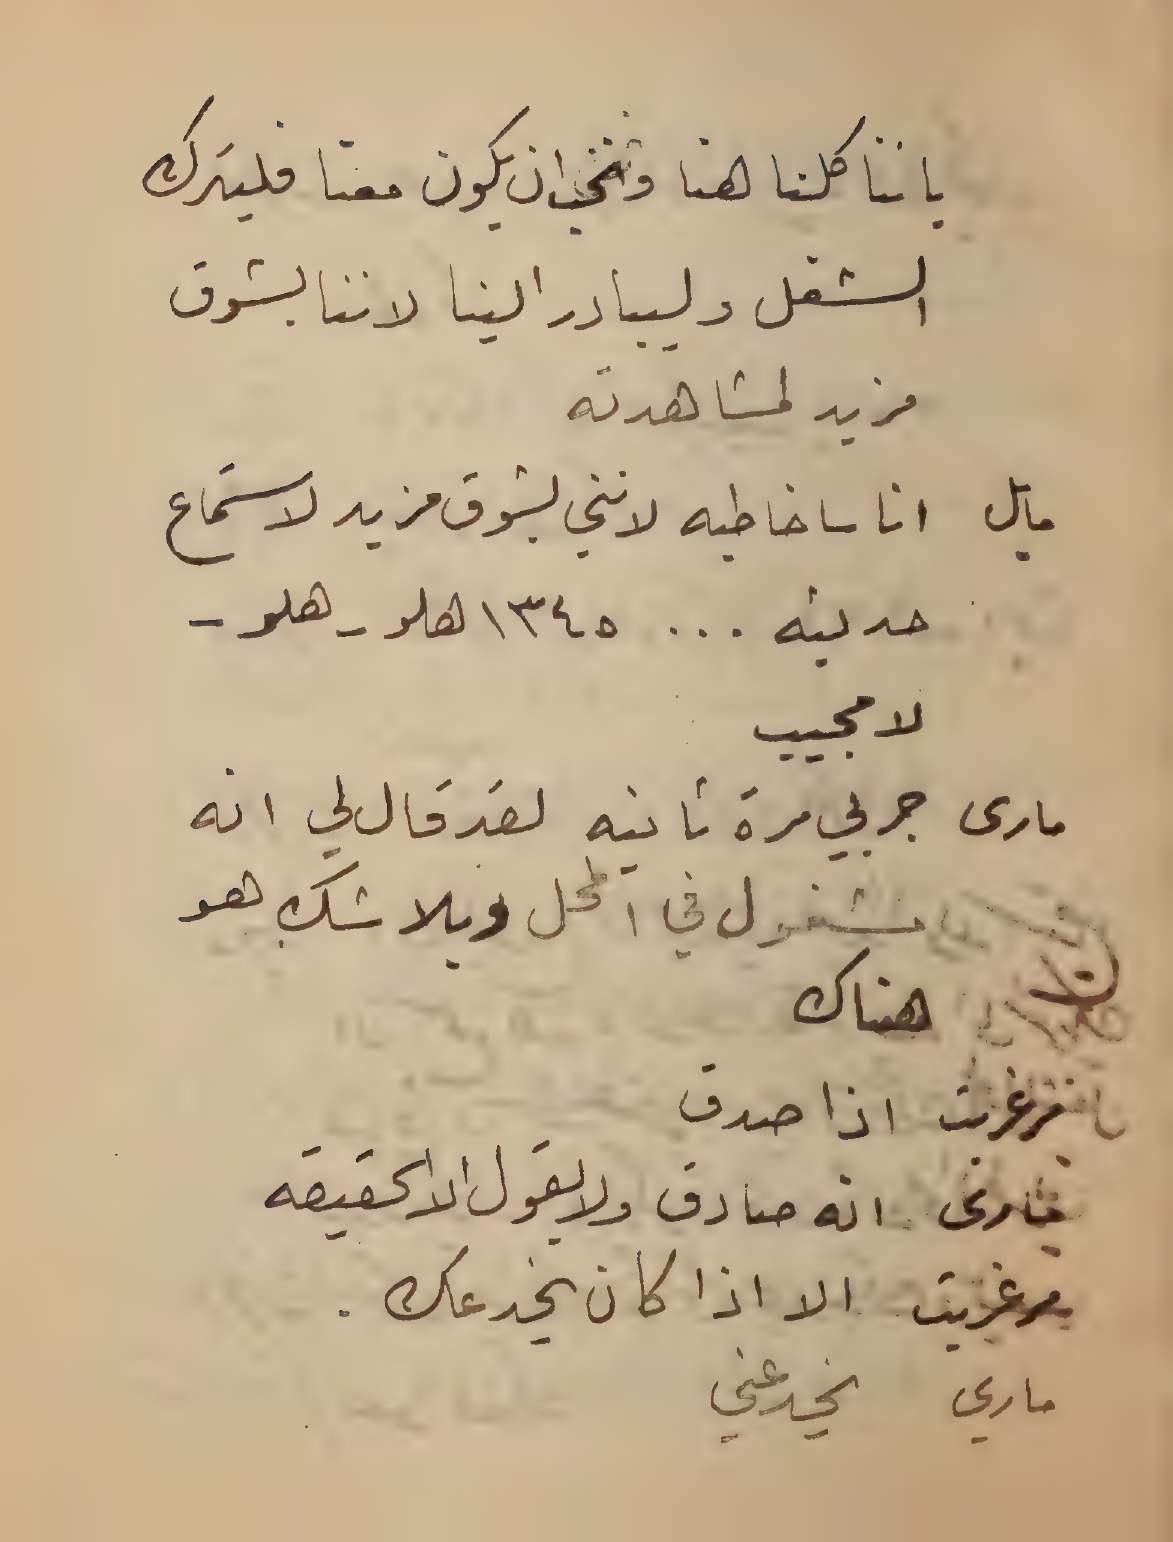 باننا كلنا هنا ونحب ان يكون معنا فليترك
الشغل وليبادر الينا لاننا بشوق
مزيد لمشاهدته
مايل انا ساخاطبه لانني بشوق مزيد لاستماع
حديثه ... ١٣٤٥ هلو - هلو -
لا مجيب
مارى جربي مرة ثانيه لقد قال لي انه
مشغول في المحل وبلا شك هو
هناك
مرغريت اذا صدق
مارى انه صادق ولا يقول الا الحقيقه
مرغريت الا اذا كان يخدعك .
ماري يخدعني